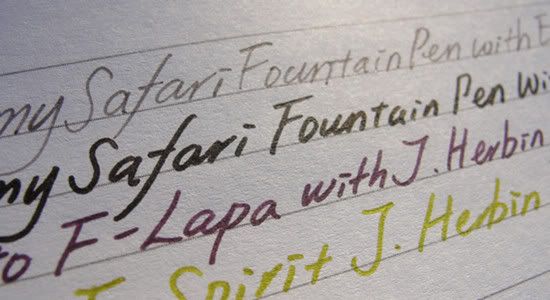 my Safari Fountain Pen with
my Safari Fountain Pen
to F-Lapa with J. Herbin
Spirit J. Herbin